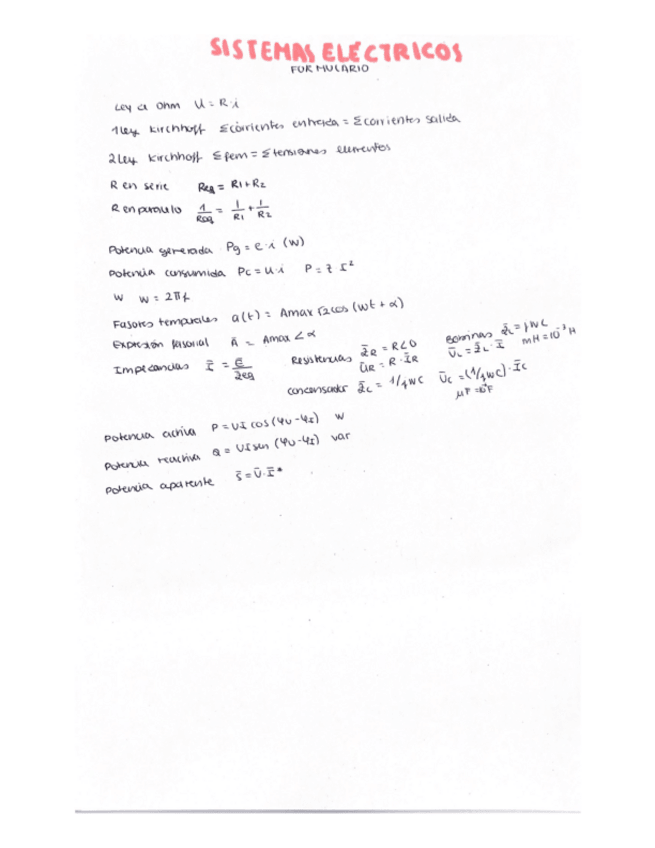 SISTEMAS ELÉCTRICOS
FORMULARIO
Ley de Ohm U = R·i
1 Ley Kirchhoff Σ corrientes entrada = Σ corrientes salida
2 Ley Kirchhoff Σ fem = Σ tensiones elementos
R en serie Req = R1 + R2
R en paralelo 1/Req = 1/R1 + 1/R2
Potencia generada Pg = e·i (W)
Potencia consumida Pc = u·i P = Z I²
W W = 2πf
Fasores temporales a(t) = Amax √2 cos (wt + α)
Expresión fasorial Ā = Amax ∠α
Impedancias Ī = Ē/Zeq
Resistencias Z̄R = R∠0
ŪR = R·ĪR
Bobinas Z̄L = jWL
ŪL = Z̄L·Ī mH = 10⁻³ H
condensador Z̄c = 1/jWC Ūc = (1/jWC)·Īc
Potencia activa P = UI cos(φu - φI) W
Potencia reactiva Q = UI sen(φu - φI) var
Potencia aparente S̄ = Ū·Ī*